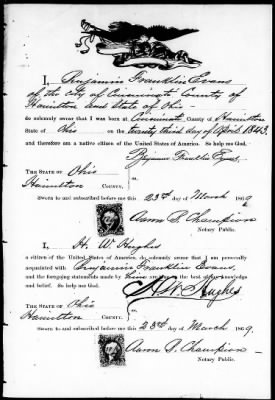 I, Benjamin Franklin Evans
of the City of Cincinnati County of
Hamilton and State of Ohio
do solemnly swear that I was born at Cincinnati County of Hamilton
State of Ohio on the twenty third day of April 1843,
and therefore am a native citizen of the United States of America. So help me God.
Benjamin Franklin Evans
THE STATE OF Ohio
Hamilton COUNTY.
Sworn to and subscribed before me this 23rd day of March 1869
Aaron B. Champion
Notary Public.
I, H. W. Hughes
a citizen of the United States of America, do solemnly swear that I am personally
acquainted with Benjamin Franklin Evans,
and the foregoing statements made by him are true to the best of my knowledge
and belief. So help me God.
H. W. Hughes
THE STATE OF Ohio
Hamilton COUNTY.
Sworn to and subscribed before me this 23rd day of March 1869.
Aaron B. Champion
Notary Public.